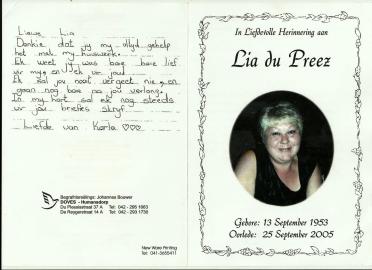 Liewe Lia
Dankie dat jy my altyd gehelp
het met my huiswerk.
Ek weet jy was baie baie lief
vir my en ek vir jou
Ek sal jou nooit vergeet nie en
gaan nog baie na jou verlang.
In my hart sal ek nog steeds
vir jou briefies skryf.
Liefde van Karla ♡♡♡
Begrafnisreëlings: Johannes Bouwer
DOVES - Humansdorp
Du Plessisstraat 37 A Tel: 042 - 295 1663
De Reygerstraat 14 A Tel: 042 - 293 1738
New Wave Printing
Tel: 041-3655411
In Liefdevolle Herinnering aan
Lia du Preez
Gebore: 13 September 1953
Oorlede: 25 September 2005